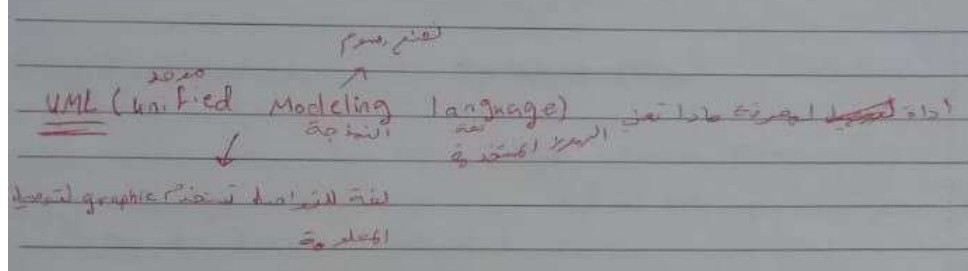 رسوم
موحد
UML (Unified Modeling language) أداة لمعرفة ماذا تعني
النمذجة لغة الرموز المستخدمة
لغة للتواصل تستخدم graphic لتوصيل
المعلومة